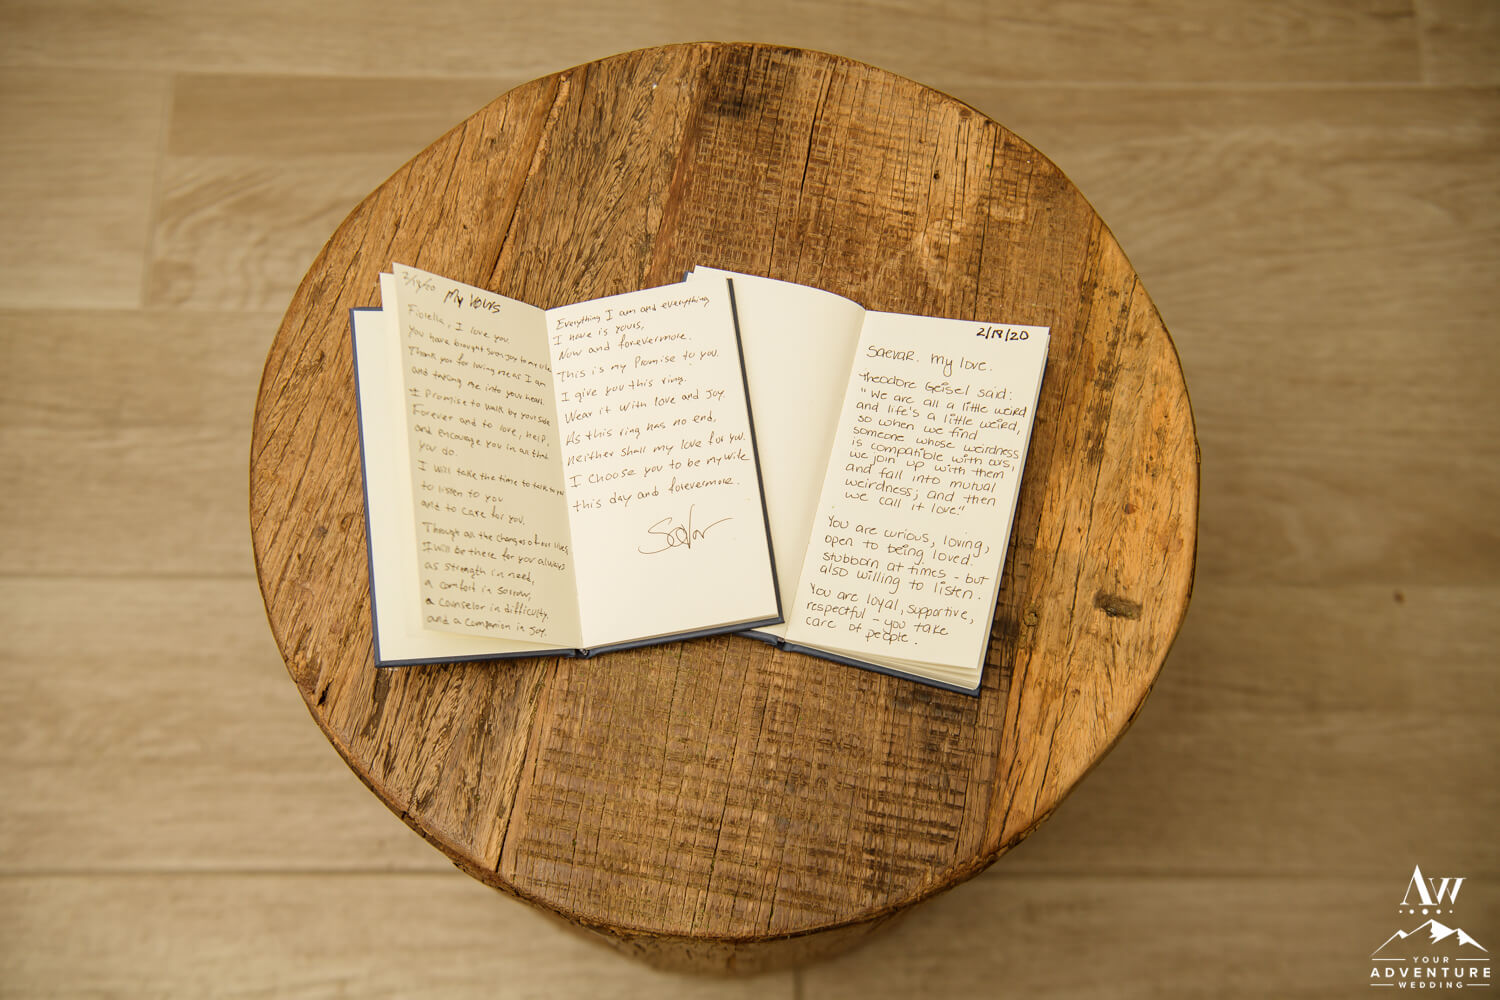 2/19/20
My Vows
Fiorella, I love you.
you have brought such joy to my life
Thank you for loving me as I am
and taking me into your heart.
I Promise to walk by your side
Forever and to love, help,
and encourage you in all that
you do.
I will take the time to talk to you
to listen to you
and to care for you.
Through all the changes of our lives
I will be there for you always
as strength in need,
a comfort in sorrow,
a counselor in difficulty.
and a Companion in Joy.
Everything I am and everything
I have is yours,
Now and forevermore.
This is my Promise to you.
I give you this ring.
Wear it with love and Joy.
As this ring has no end,
neither shall my love for you.
I Choose you to be my wife
this day and forevermore.
2/19/20
Saevar. My love.
Theodore Geisel said:
"We are all a little weird
and life's a little weird,
so when we find
someone whose weirdness
is compatible with ours,
we join up with them
and fall into mutual
weirdness; and then
we call it love."
You are curious, loving,
open to being loved.
stubborn at times - but
also willing to listen.
You are loyal, supportive,
respectful - you take
care of people.
AW
YOUR
ADVENTURE
WEDDING